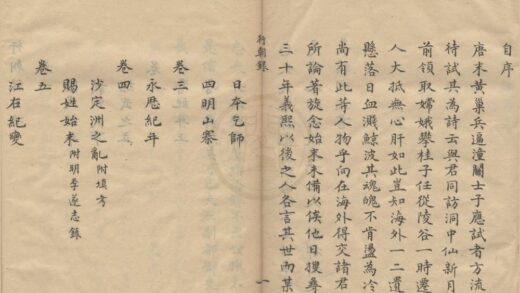 自序
唐末黃巢兵逼潼關士子應試者方流
待試其為詩云與君同訪洞中仙新月
前領取嫦娥攀桂子任從陵谷一時遷
人大抵無心肝如此豈知海外一二遺
懸落日血濺鯨波其魂魄不肯盪為冷
尚有此等人物乎向在海外得交諸君
所論著旋念始末未備以俟他日搜尋
三十年義熙以後之人各言其世而某
行朝錄
一
日本乞師
四明山寨
卷三
永厯紀年
卷四
沙定洲之亂附滇考
賜姓始末附明季遂志錄
卷五
江右紀變